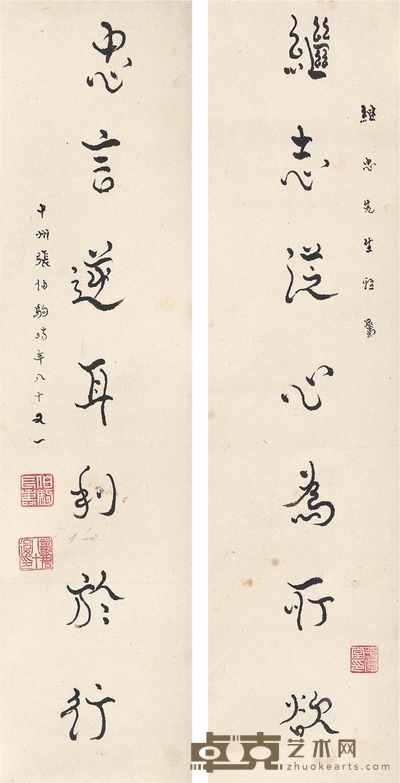 繼忠先生
繼志從心為所欲
忠言逆耳利於行
中州張伯駒時年八十又一
卓克艺术网
zhuokearts.com